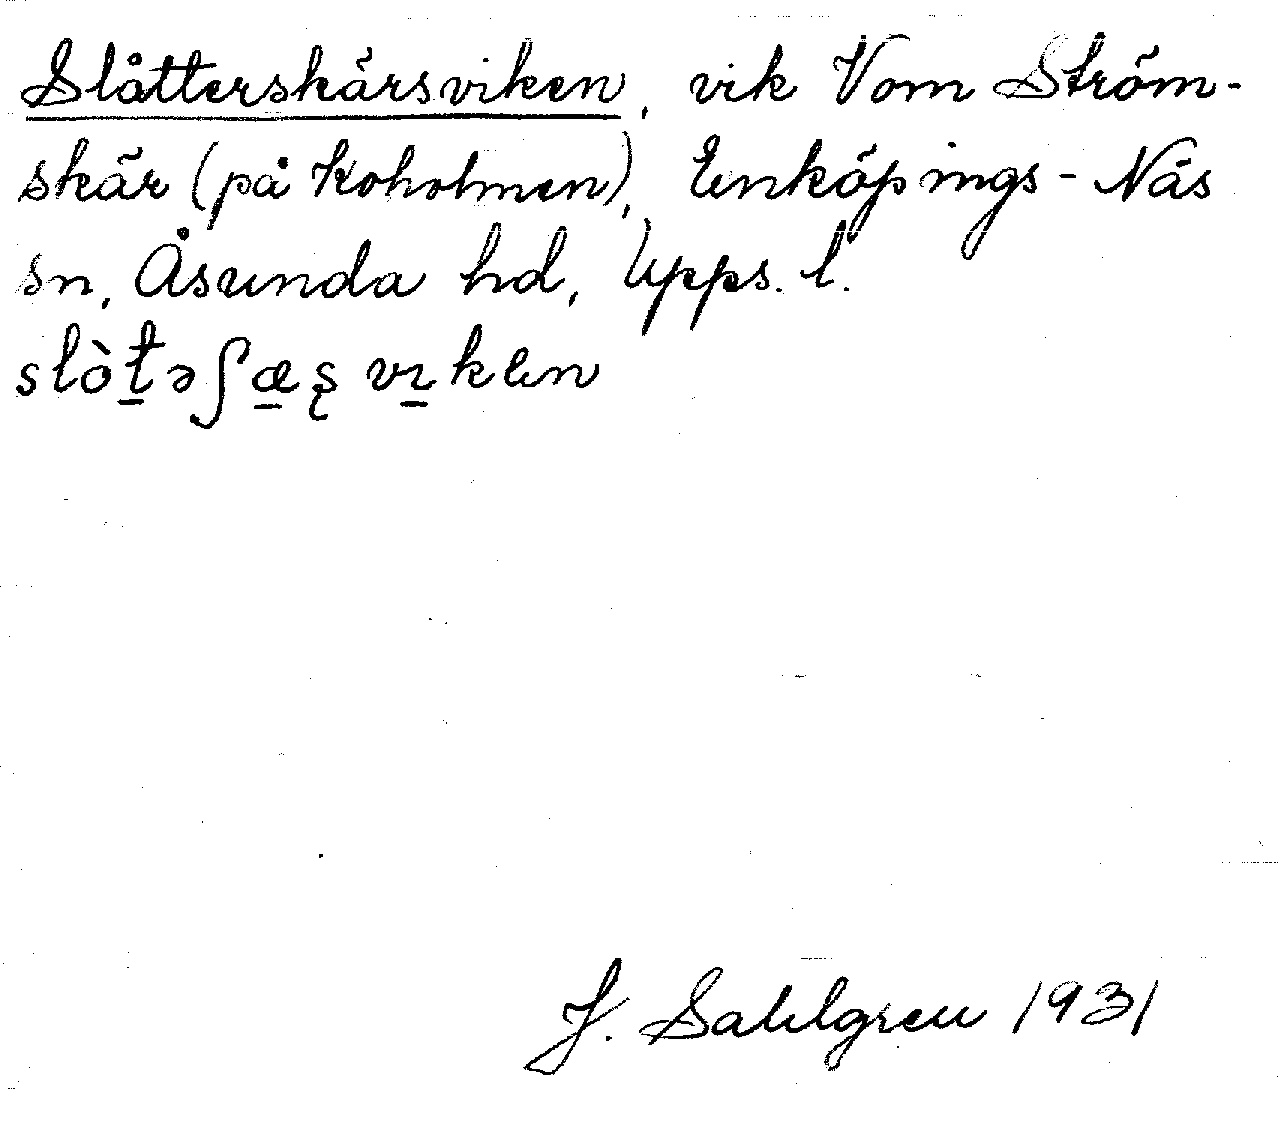 Slåtterskärsviken, vik V om Ström-
skär (på Koholmen), Enköpings-Näs
sn, Åsunda hd, Upps. l.
slòt̲əʃæ̲ʂ vɪ̲ken
J. Sahlgren 1931